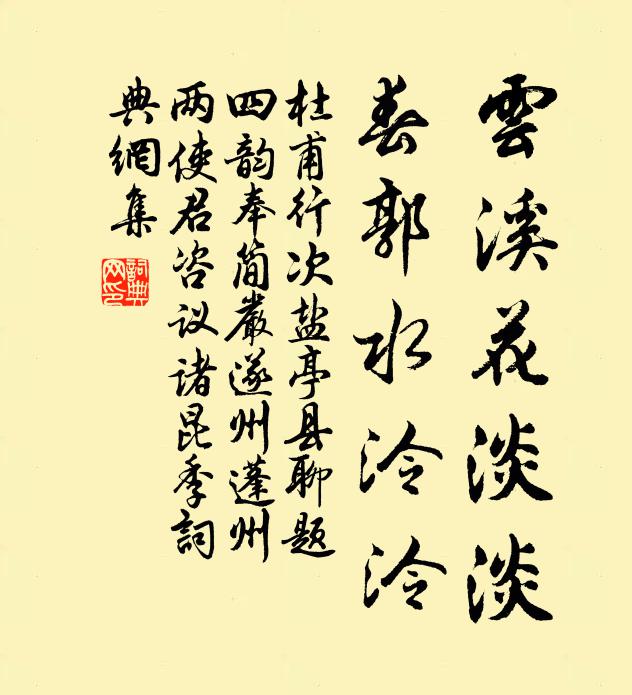 雲溪花淡淡
春郭水泠泠
杜甫行次盐亭县聊题
四韵奉简嚴遂州蓬州
两使君咨议诸昆季詞
典網集
詞典
网印